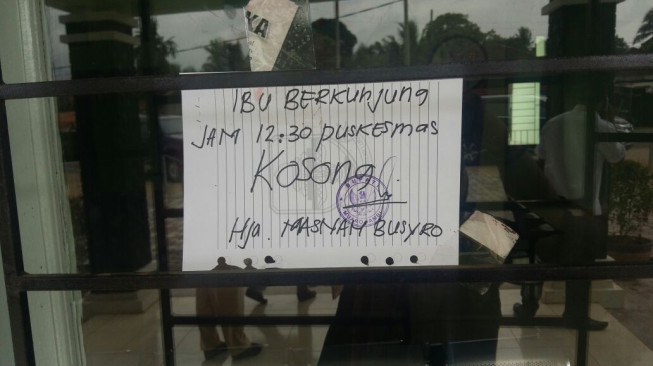 KA
IBU BERKUNJUNG
JAM 12:30 PUSKESMAS
Kosong
Hja. MASNAH BUSYRO